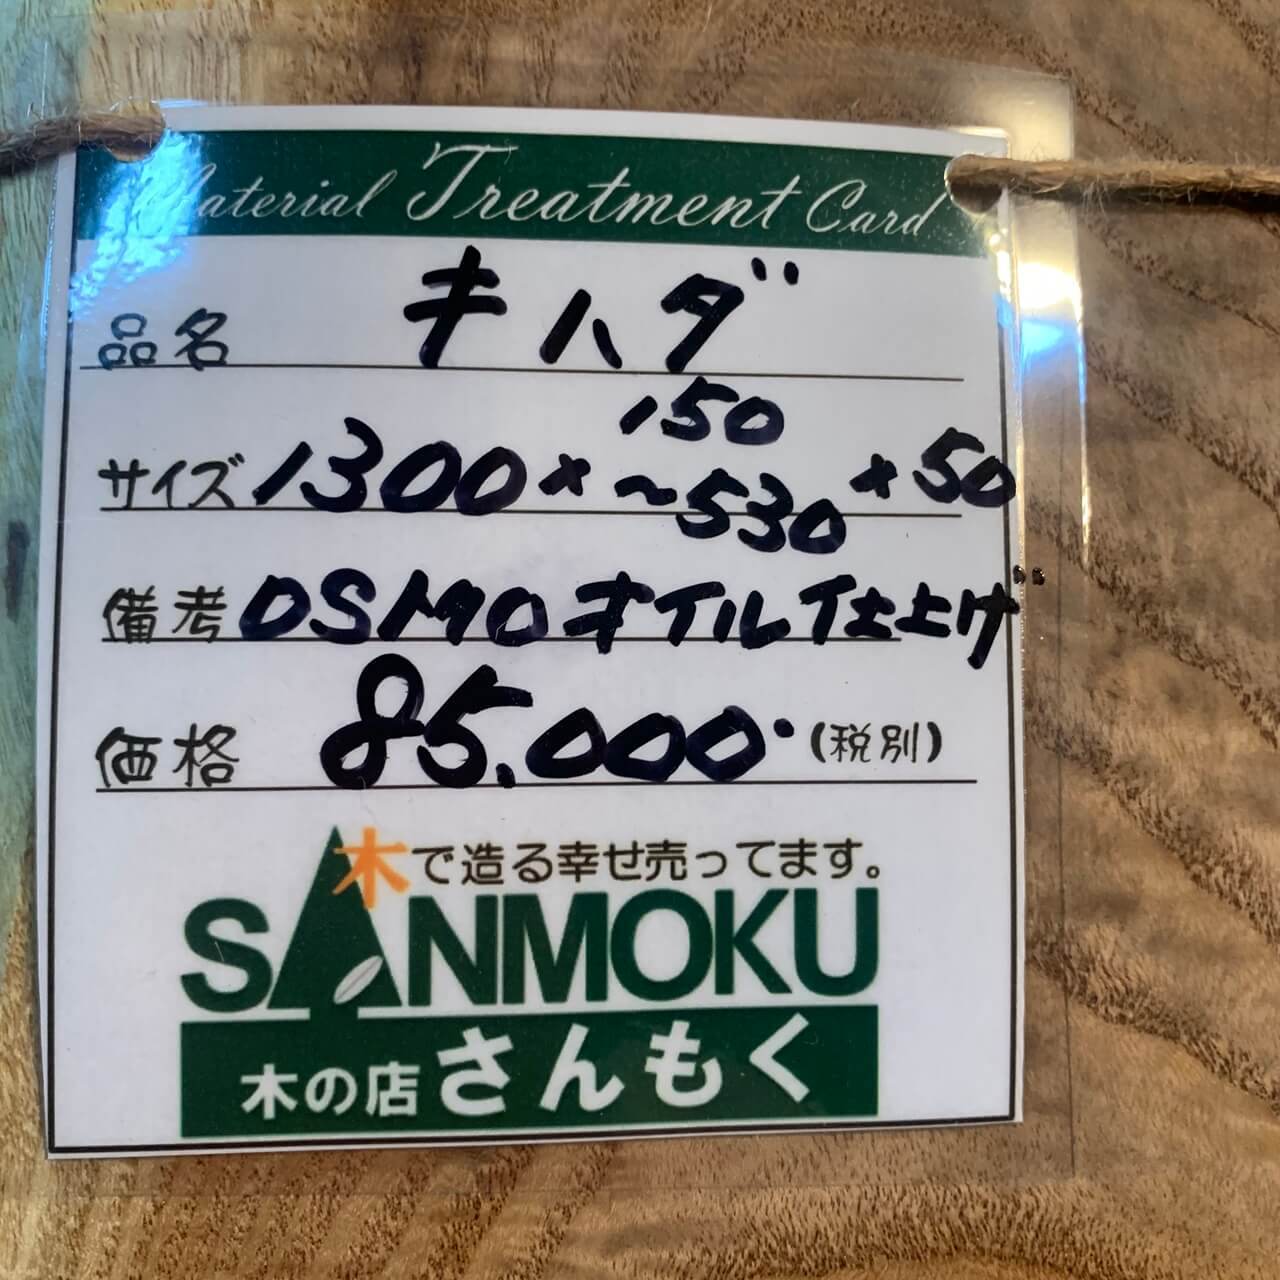 Material Treatment Card
品名 キハダ
サイズ 1300×150～530×50
備考 OSMOオイル仕上げ
価格 85.000. (税別)
木で造る幸せ売ってます。
SANMOKU
木の店さんもく